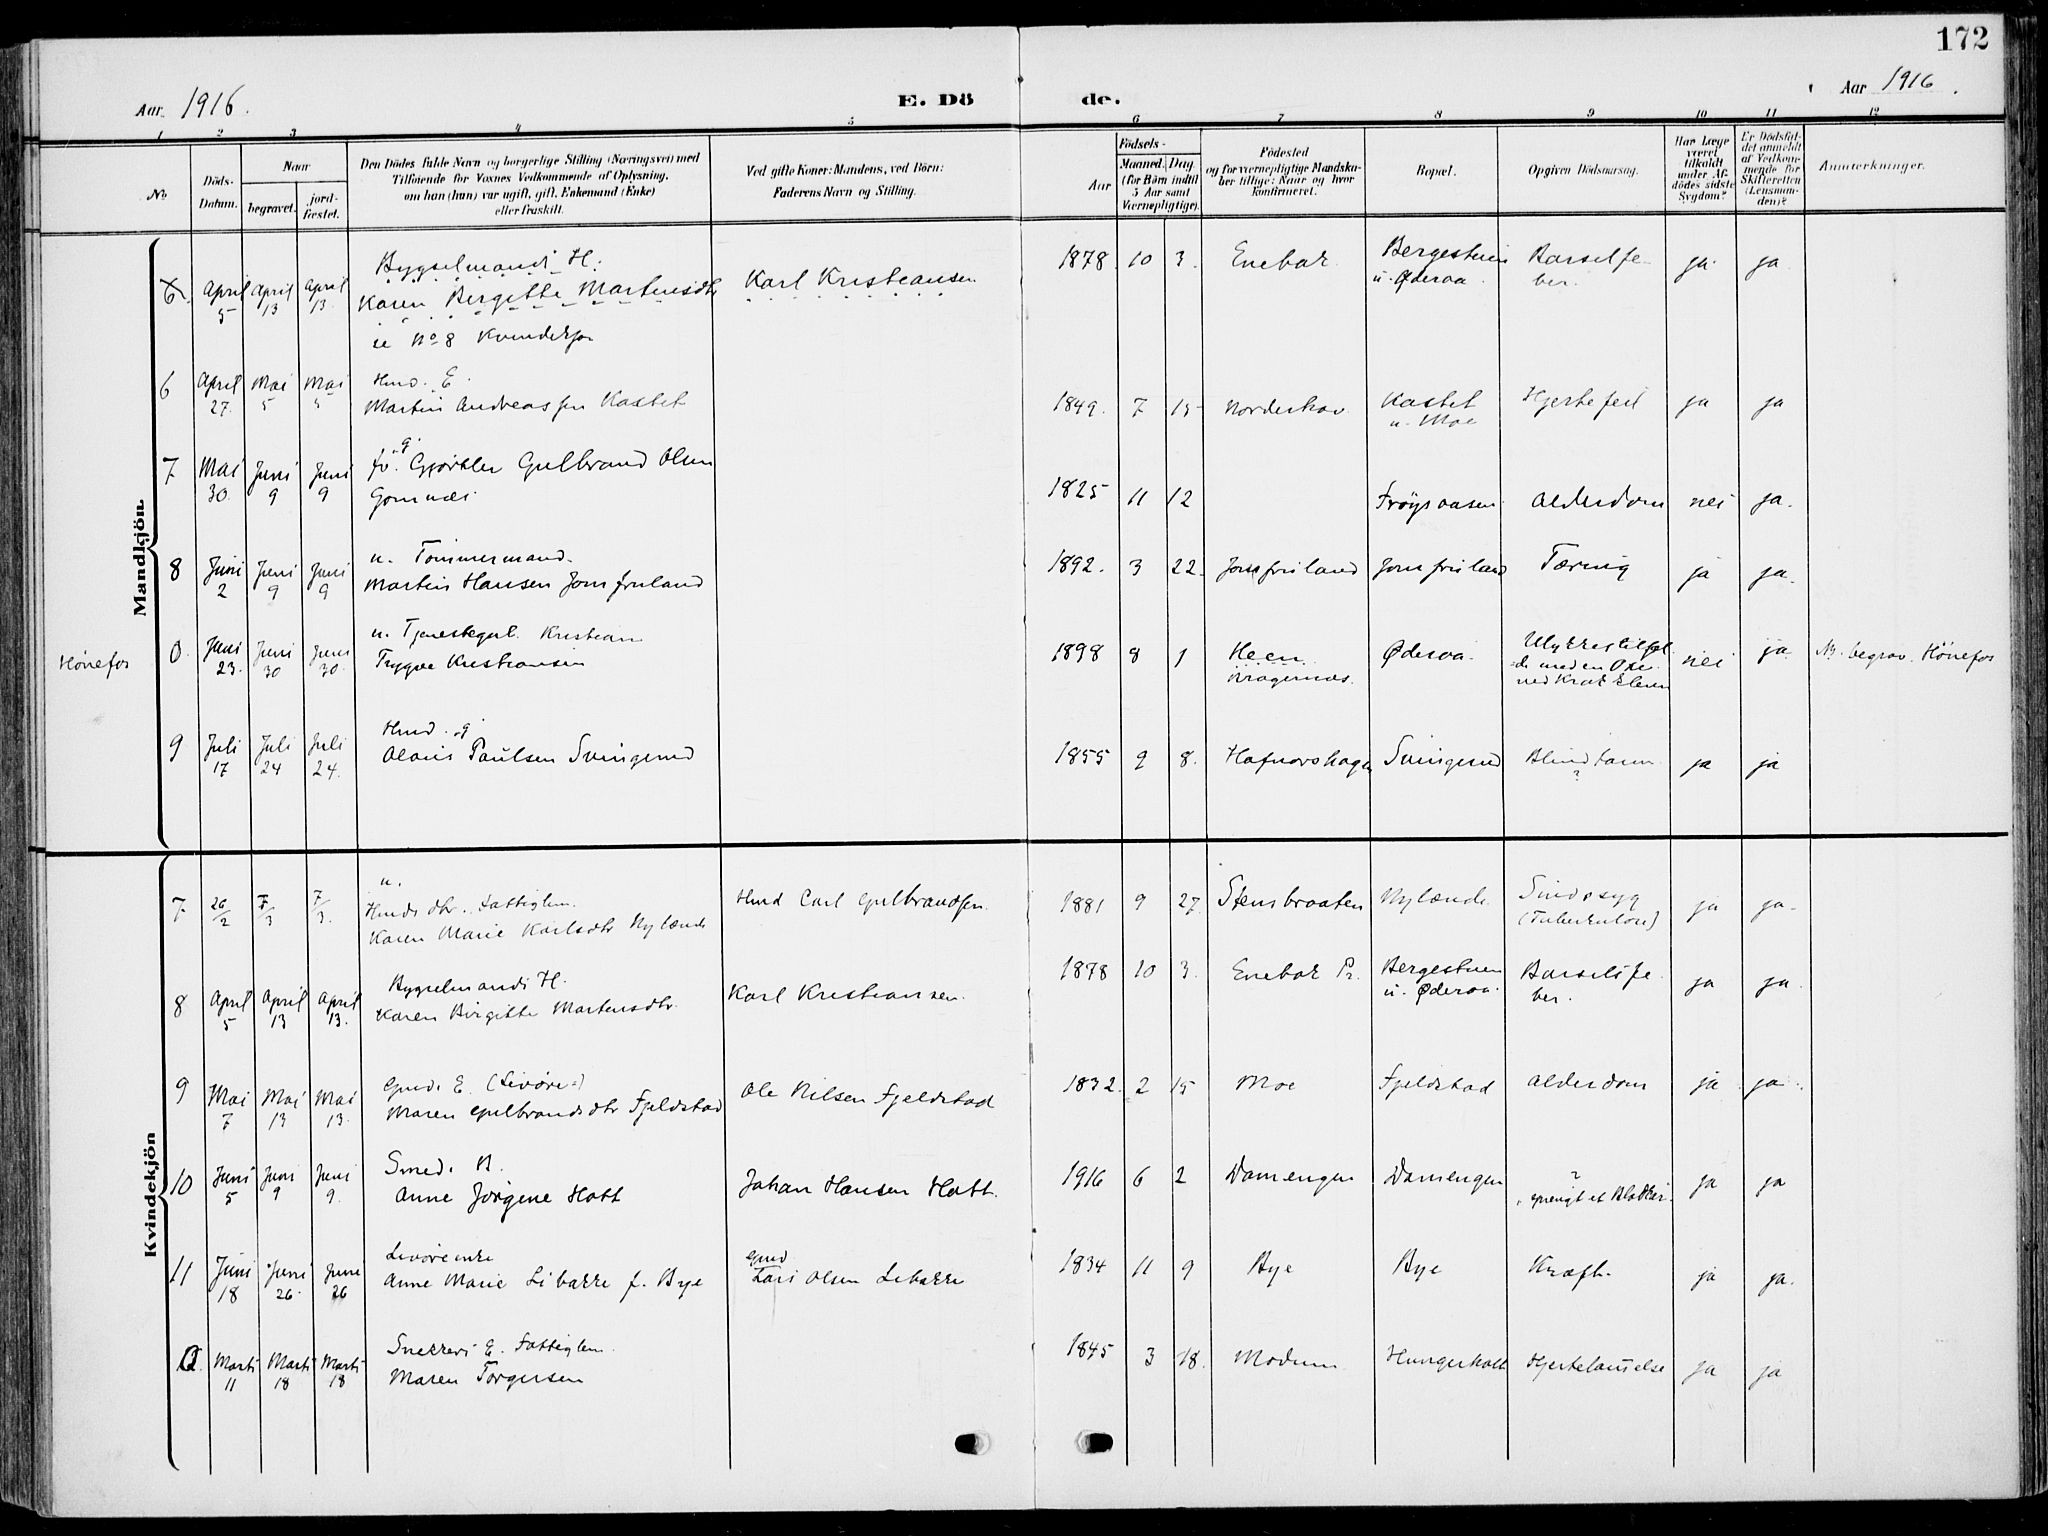 172
Aar 1916.
E. Döde.
Aar 1916.
1 2 3 4 5 6 7 8 9 10 11 12
No.
Döds-Datum.
Naar
begravet.
jord-fæstet.
Den Dödes fulde Navn og borgerlige Stilling (Næringsvei) med
Tilföiende for Voxnes Vedkommende af Oplysning,
om han (hun) var ugift, gift, Enkemand (Enke)
eller fraskilt.
Ved gifte Koner: Mandens, ved Börn:
Faderens Navn og Stilling.
Aar
Födsels-
Maaned. Dag
(for Börn indtil
5 Aar samt
Værnepligtige).
Födested
og for værnepligtige Mandska-
ber tillige: Naar og hvor
konfirmeret.
Bopæl.
Opgiven Dödsaarsag.
Har Læge
været
tilkaldt
under Af-
dödes sidste
Sygdom?
Er Dödsfal-
det anmeldt
af Vedkom-
mende for
Skifteretten
(Lensman-
den)?
Anmærkninger.
Mandkjön.
6. April 5 April 13 April 13 Bygselmands H:
Karen Bergitte Martensdtr Karl Kristiansen 1878 10 3. Enebak Bergestuen u. Øderaa Barselfeber. ja ja
se No 8 Kvindekjøn
6 April 27. Mai 5 Mai 5 Hmd. E.
Martin Andreassen Kastet 1849. 7 15 Norderhov Kastet u. Moe Hjertefeil ja ja
7 Mai 30. Juni 9 Juni 9 fv. g. Gjørtler Gulbrand Olsen
Gomnæs 1825 11 12 Frøysaasen Alderdom nei ja.
8 Juni 2 Juni 9 Juni 9 u. Tømmermand.
Martin Hansen Jomfruland 1892. 3 22. Jomfruland Jomfruland Tæring ja ja.
Hönefos 0. Juni 23. Juni 30 Juni 30. u. Tjenestegut. Kristian
Trygve Kristiansen 1898 8 1 Heen Kragernæs. Øderaa. nei ja No. begrav. Hönefos
9 Juli 17 Juli 24 Juli 24. Hmd. g
Olaus Paulsen Svingerud 1855 9 8. Hafnorshagen Svingerud Blindtarm ? ja ja
Kvindekjön
7 26/2 7/3 7/3. u.
Hmds dtr. Fattiglem.
Karen Marie Karlsdtr Nylænde Hmd Carl Gulbrandsen 1881 9 27. Stensbraaten Nylænde Sindssyg (Tuberkulose) ja ja
8 April 5 April 13 April 13. Bygselmands H.
Karen Birgitte Martensdtr. Karl Kristiansen. 1878 10 3. Enebak Pr. Bergestuen u. Øderaa. Barselsfeber. ja ja.
9 Mai 7 Mai 13 Mai 13. Gmds E. (Livøre)
Maren Gulbrandsdtr Fjeldstad Ole Nilsen Fjeldstad 1832. 2 15 Moe Fjeldstad Alderdom ja ja.
10 Juni 5 Juni 9 Juni 9. Smeds B.
Anne Jørgine Hatt Johan Hansen Hatt. 1916 6 2 Damengen Damengen ? sprengt et Blodkar. ja ja
11 Juni 18 Juni 26. Juni 26 Livøreenke
Anne Marie Libakke f. Bye Gmd Lars Olsen Libakke 1834 11 9 Bye Bye Kræft. ja ja.
Marts 11 Marts 18 Marts 18 Snekkers E. Fattiglem.
Maren Torgersen 1845 3 18. Modum Hungerholt Hjertelammelse ja ja